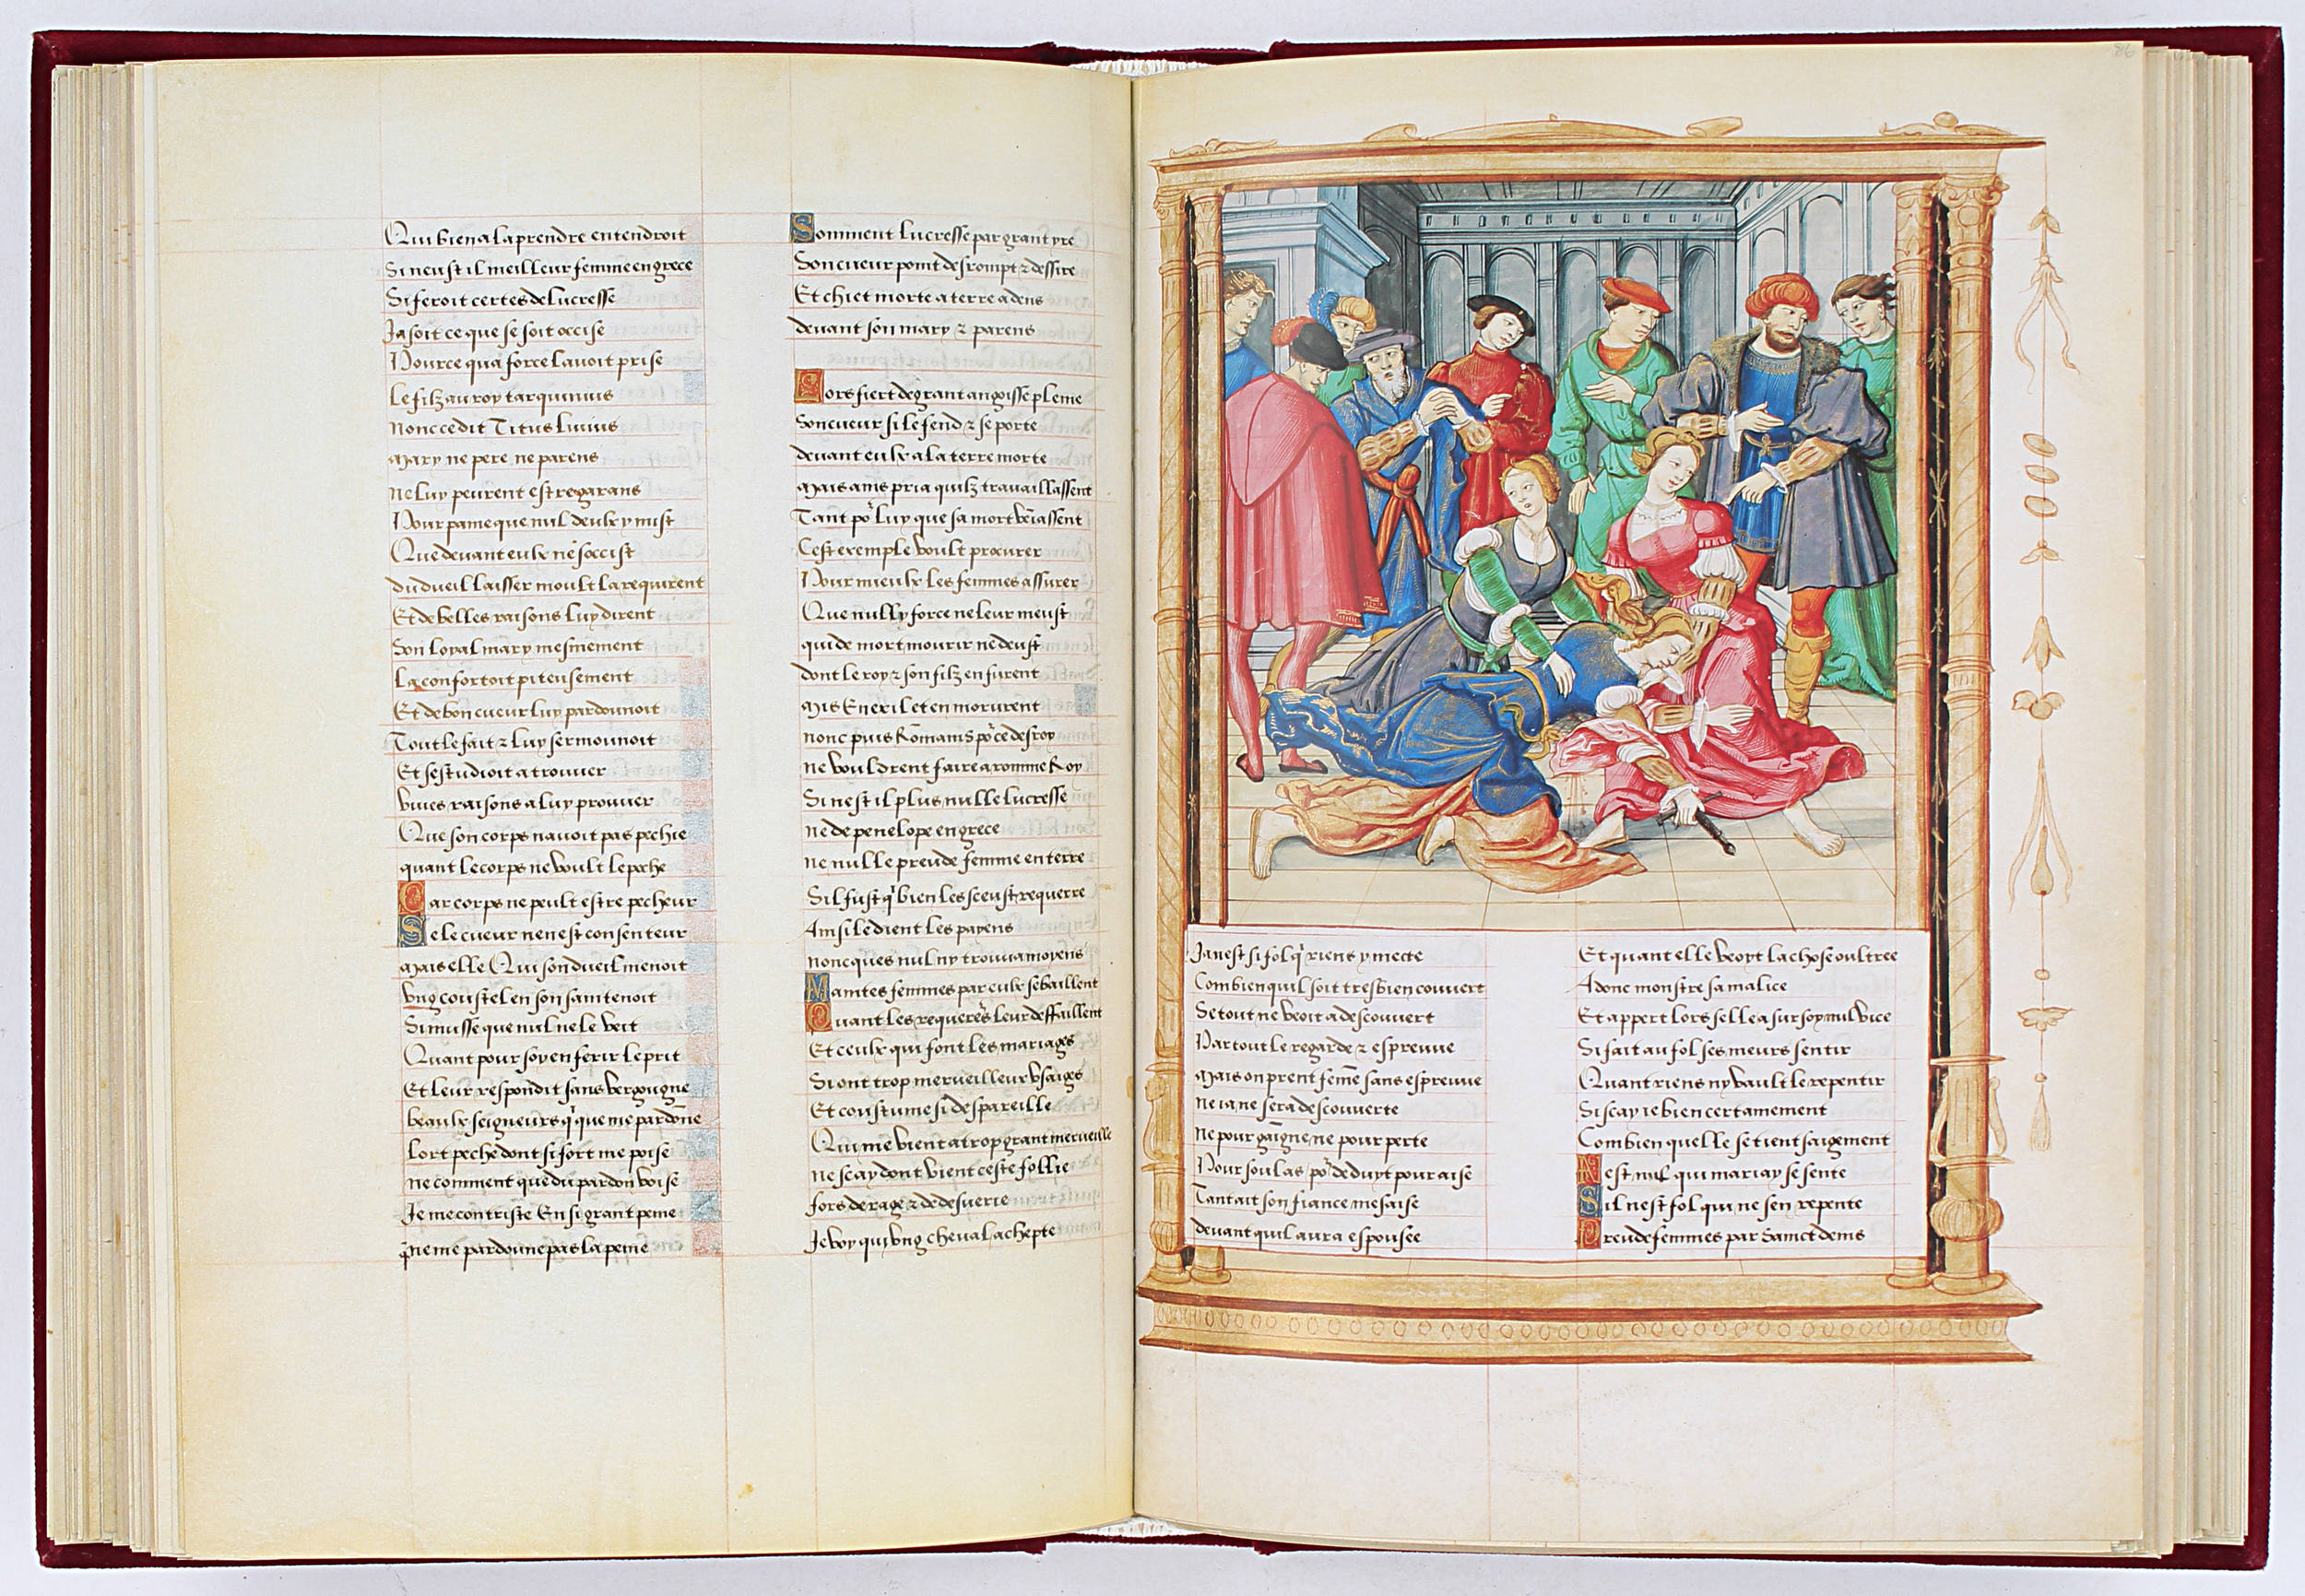 Qui bien a laprendre entendroit
Si neust il meilleur femme en grece
Si feroit certes de lucresse
Ja soit ce que se soit occise
Pource qua force lavoit prise
Le filz au roy tarquinius
Nonc ce dit Titus livius
Mary ne pere ne parens
Ne luy peurent estre garans
Pour paine que nul deulx y mist
Que devant eulx ne soccist
du dueil laisser moult la requirent
Et de belles raisons luy dirent
Son loyal mary mesmement
La confortoit piteusement
Et de bon cueur luy pardonnoit
Tout le fait z luy sermonnoit
Et sestudioit a trouver
Vives raisons a luy prouver
Que son corps navoit pas pechie
quant le corps ne voult le peche
Car corps ne peult estre pecheur
Se le cueur nen est consenteur
Mais elle Qui son dueil menoit
Vng coustel en son sain tenoit
Si musse que nul ne le veit
Quant pour soy en ferir le prit
Et leur respondit sans vergougne
beaulx seigneurs q̃ que me pardõne
Lort peche dont si fort me poise
ne comment que du pardon voise
Je me contriste En si grant peine
q̃ ne me pardonne pas la peine
Comment lucresse par grant yre
Son cueur point desrompt z dessire
Et chiet morte a terre adens
devant son mary z parens
Lors fiert de grant angoisse pleine
Son cueur si le fend z se porte
devant eulx a la terre morte
Mais ains pria quilz travaillassent
Tant po˚ luy que sa mort vẽiassent
Cest exemple voult procurer
Pour mieulx les femmes assurer
Que nully force ne leur meust
qui de mort mourir ne deust
dont le roy z son filz en furent
Mis En exil et en morurent
nonc puis Romains po˚ ce desroy
ne vouldrent faire a romme Roy
Si nest il plus nulle lucresse
ne de penelope en grece
ne nulle preude femme en terre
Sil fust q̃ bien les sceust requerre
Ainsi le dient les payens
noncques nul ny trouva moyens
Maintes femmes par eulx se baillent
Quant les requeres leur deffaillent
Et ceulx qui font les mariages
Si ont trop merveilleux usaiges
Et coustume si despareille
Qui me vient a trop grant merveille
ne scay dont vient ceste follie
fors de rage z de desverie
Je voy qui vng cheval achepte
86
Ja nest si fol q̃ riens y mecte
Combien quil soit tres bien couvert
Se tout ne veoit a descouvert
Par tout le regarde z espreuve
Mais on prent fem̃e sans espreuve
Ne ia ne sera descouverte
Ne pour gaigne ne pour perte
Pour soulas po˚ deduyt pour aise
Tant ait son fiance mesaise
devant quil aura espousee
Et quant elle veoyt la chose oultree
Adonc monstre sa malice
Et appert lors selle a sur soy nul vice
Si fait au fol ses meurs sentir
Quant riens ny vault le repentir
Si scay ie bien certainement
Combien quelle se tient saigement
Nest nul qui mariay se sente
Sil nest fol qui ne sen repente
Preudefemmes par Sainct denis